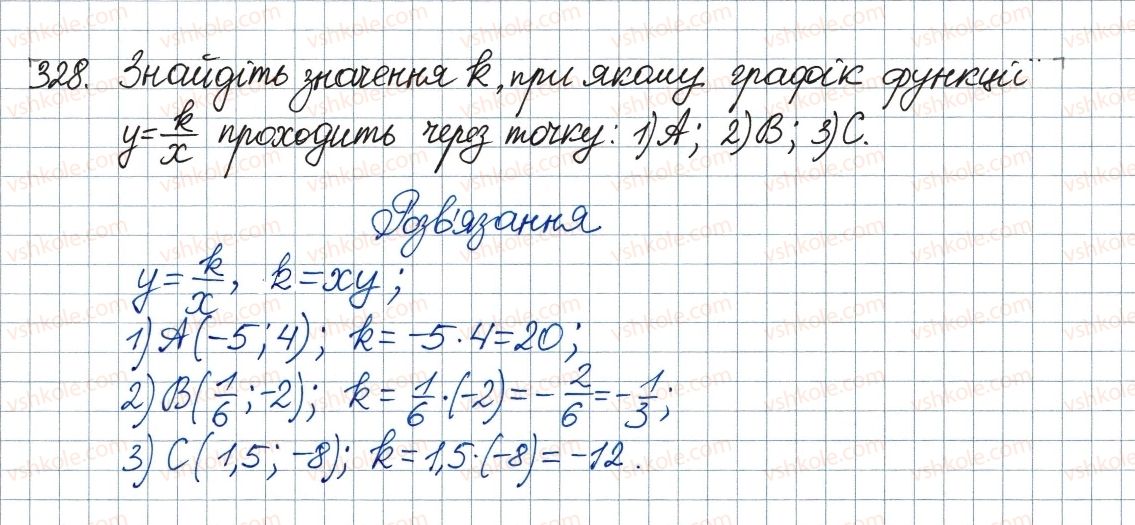 328. Знайдіть значення k, при якому графік функції
y = k/x проходить через точку: 1) A; 2) B; 3) C.
Розв'язання
y = k/x, k = xy;
1) A(-5; 4); k = -5 · 4 = 20;
2) B(1/6; -2); k = 1/6 · (-2) = -2/6 = -1/3;
3) C(1,5; -8); k = 1,5 · (-8) = -12.
vshkole.com